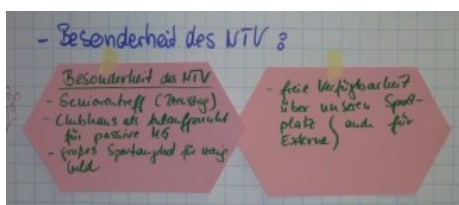 - Besonderheit des NTV?
Besonderheit des NTV
- Seniorentreff (Dienstag)
- Clubhaus als Anlaufpunkt
für passive MG
- großes Sportangebot für wenig
Geld
- freie Verfügbarkeit
über unseren
platz (auch für
Externe)